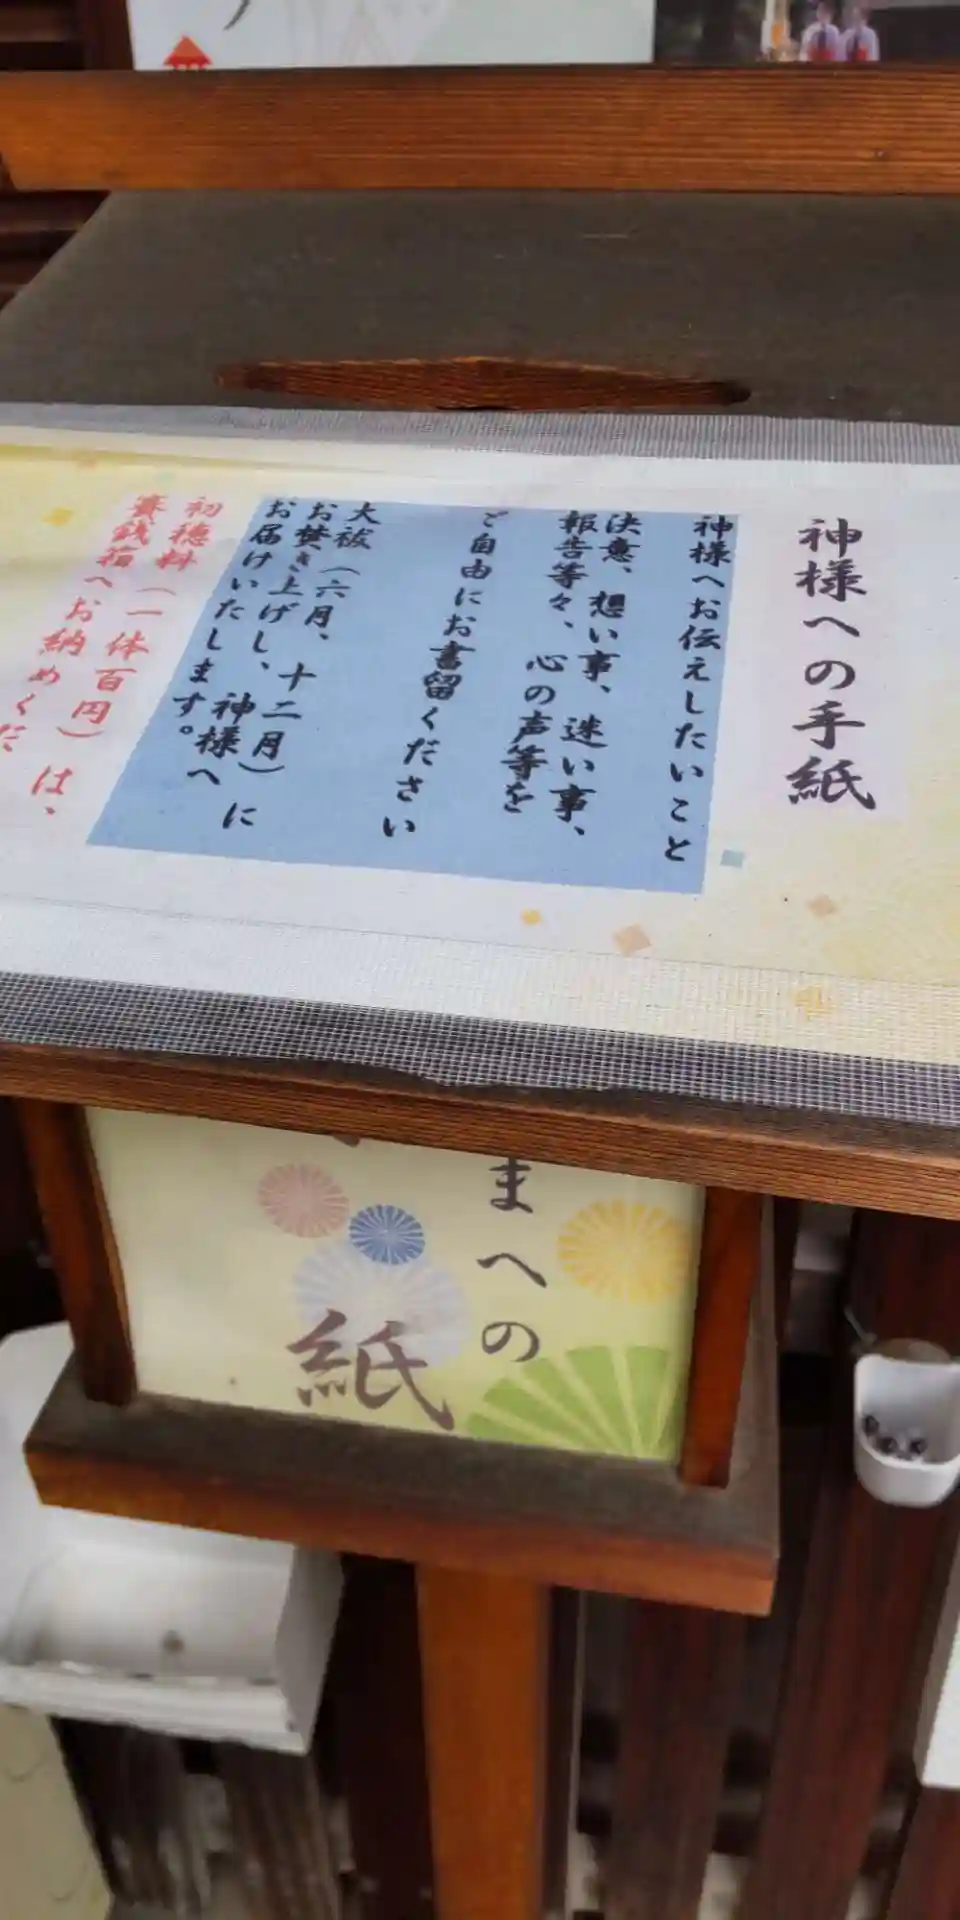 神様への手紙
神様へお伝えしたいこと
決意、想い事、迷い事、
報告等々、心の声等を
ご自由にお書留ください
大祓（六月、十二月）に
お焚き上げし、神様へ
お届けいたします。
初穂料（一体百円）は、
賽銭箱へお納めくだ
まへの
紙